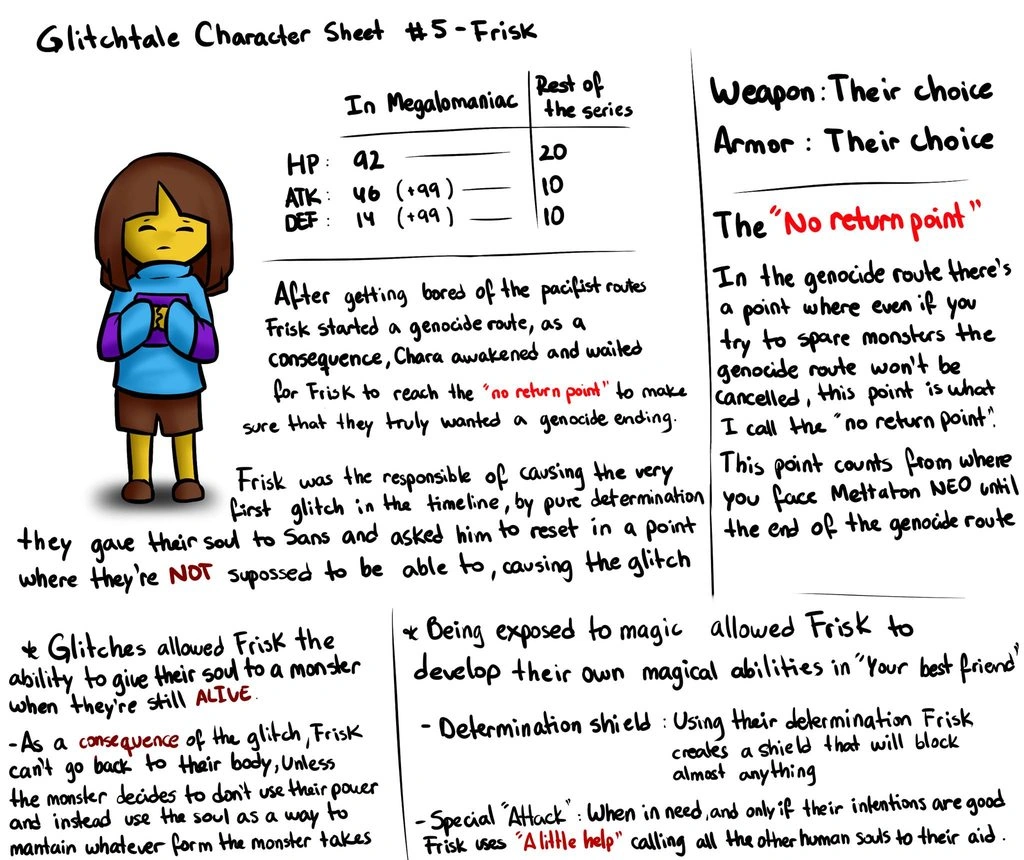 Glitchtale Character Sheet #5 - Frisk
In Megalomaniac
Rest of
the series
HP: 92 20
ATK: 46 (+99) 10
DEF: 14 (+99) 10
After getting bored of the pacifist routes
Frisk started a genocide route, as a
consequence, Chara awakened and waited
for Frisk to reach the "no return point" to make
sure that they truly wanted a genocide ending.
Frisk was the responsible of causing the very
first glitch in the timeline, by pure determination
they gave their soul to Sans and asked him to reset in a point
where they're NOT supossed to be able to, causing the glitch
Weapon: Their choice
Armor: Their choice
The "No return point"
In the genocide route there's
a point where even if you
try to spare monsters the
genocide route won't be
cancelled, this point is what
I call the "no return point".
This point counts from where
you face Mettaton NEO until
the end of the genocide route
* Glitches allowed Frisk the
ability to give their soul to a monster
when they're still ALIVE.
- As a consequence of the glitch, Frisk
can't go back to their body, Unless
the monster decides to don't use their power
and instead use the soul as a way to
mantain whatever form the monster takes
* Being exposed to magic allowed Frisk to
develop their own magical abilities in "Your best friend"
- Determination shield: Using their determination Frisk
creates a shield that will block
almost anything
- Special "Attack": When in need, and only if their intentions are good
Frisk uses "A little help" calling all the other human souls to their aid.